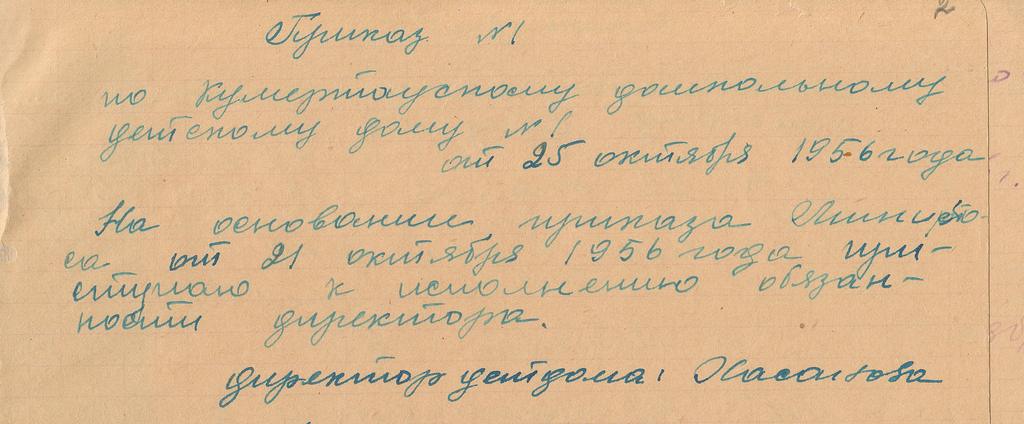 2
Приказ №1
по Кумертаускому дошкольному
детскому дому №1
от 25 октября 1956 года
На основании приказа Минипро-
са от 21 октября 1956 года при-
ступаю к исполнению обязан-
ности директора.
директор детдома: Хасанова